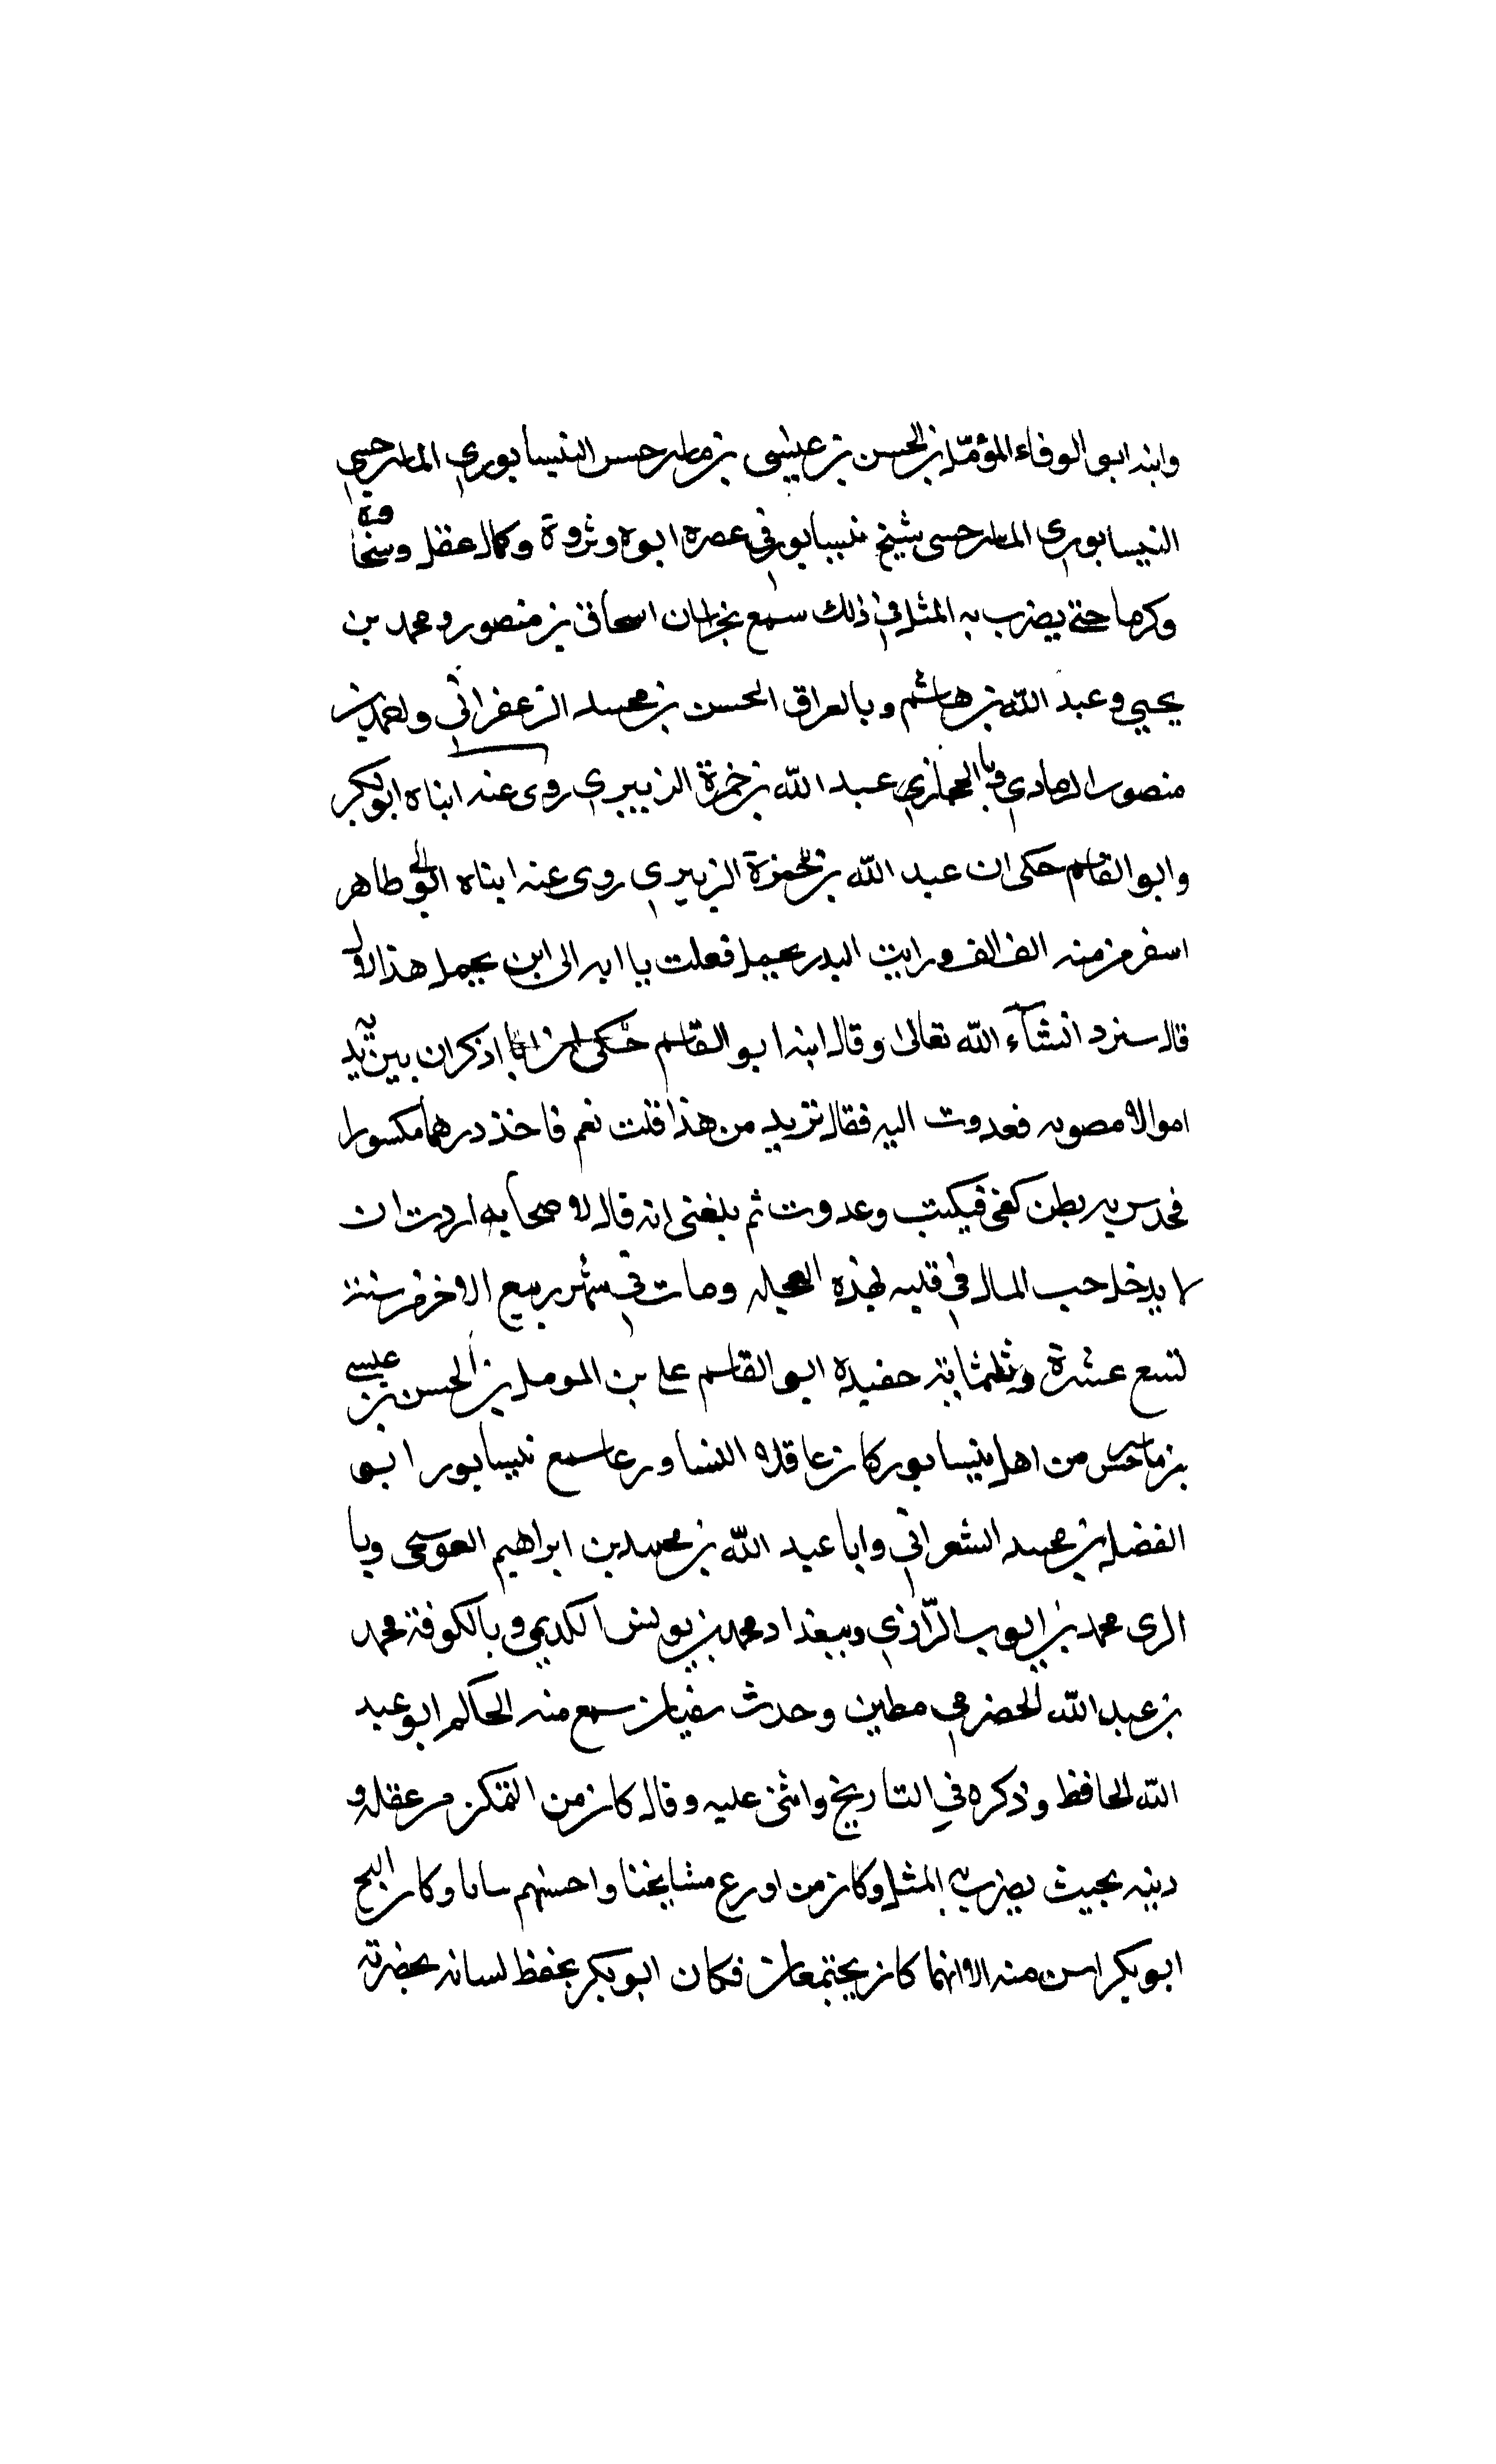 وابنه ابو الوفاء المؤمّل بن الحسن بن عيسى بن ماسرجس النيسابوري الماسرجسي
النيسابوري الماسرجسى شيخ نيسابور في عصره ابوة وثروة وكمال عقل وسخا
وكرما حتى يضرب به المثل في ذلك سمع بخراسان اسحاق بن منصور ومحمد بن
يحيى وعبد الله بن هاشم وبالعراق الحسن بن محمد الزعفراني واحمد بن
منصور الرمادي وبالحجاز عبد الله بن حمزة الزبيري روى عنه ابناه ابو بكر
وابو القاسم حكى ان عبد الله بن حمزة الزبيري روى عنه ابناه طاهر
اسفر من منه الف الف ورايت البدر يحمل فعلت يا ابه الى اين يحمل هذا
قال سنرد انشآء الله تعالى وقال ابنه ابو القاسم حكى اذكر ان بين يديه
اموالا مصوبه فعدوت اليه فقال تريد من هذا قلت نعم فاخذ درهما مكسورا
به بطن كفى فبكيت وعدوت ثم بلغنى انه قال لاصحابه اردت ان
لا يدخل حب المال في قلبه لهذه العجله ومات في شهر ربيع الاخر من سنة
تسع عشرة وثلثمائة حفيده ابو القاسم على بن المومل بن الحسن بن عيسى
بن ماسرجس من اهل نيسابور كان عاقله النسا ورعا سمع نيسابور ابو
الفضل بن محمد الشعراني وابا عبد الله بن محمد بن ابراهيم وبا
الرى محمد بن ايوب الرّازي وببغداد محمد بن يونس الكديمي وبالكوفة محمد
بن عبد الله الحضرمي مطين وحدث سفيان سمع منه الحاكم ابو عبد
الله الحافظ وذكره في التاريخ واثنى عليه وقال كان من التمكن من عقله و
دينه بحيث يضرب به المثل وكان من اورع مشايخنا واحسنهم وكان
ابو بكر اسن منه الا انهما كان يجتمعان فكان ابو بكر بحفظ لسانه بحضرته